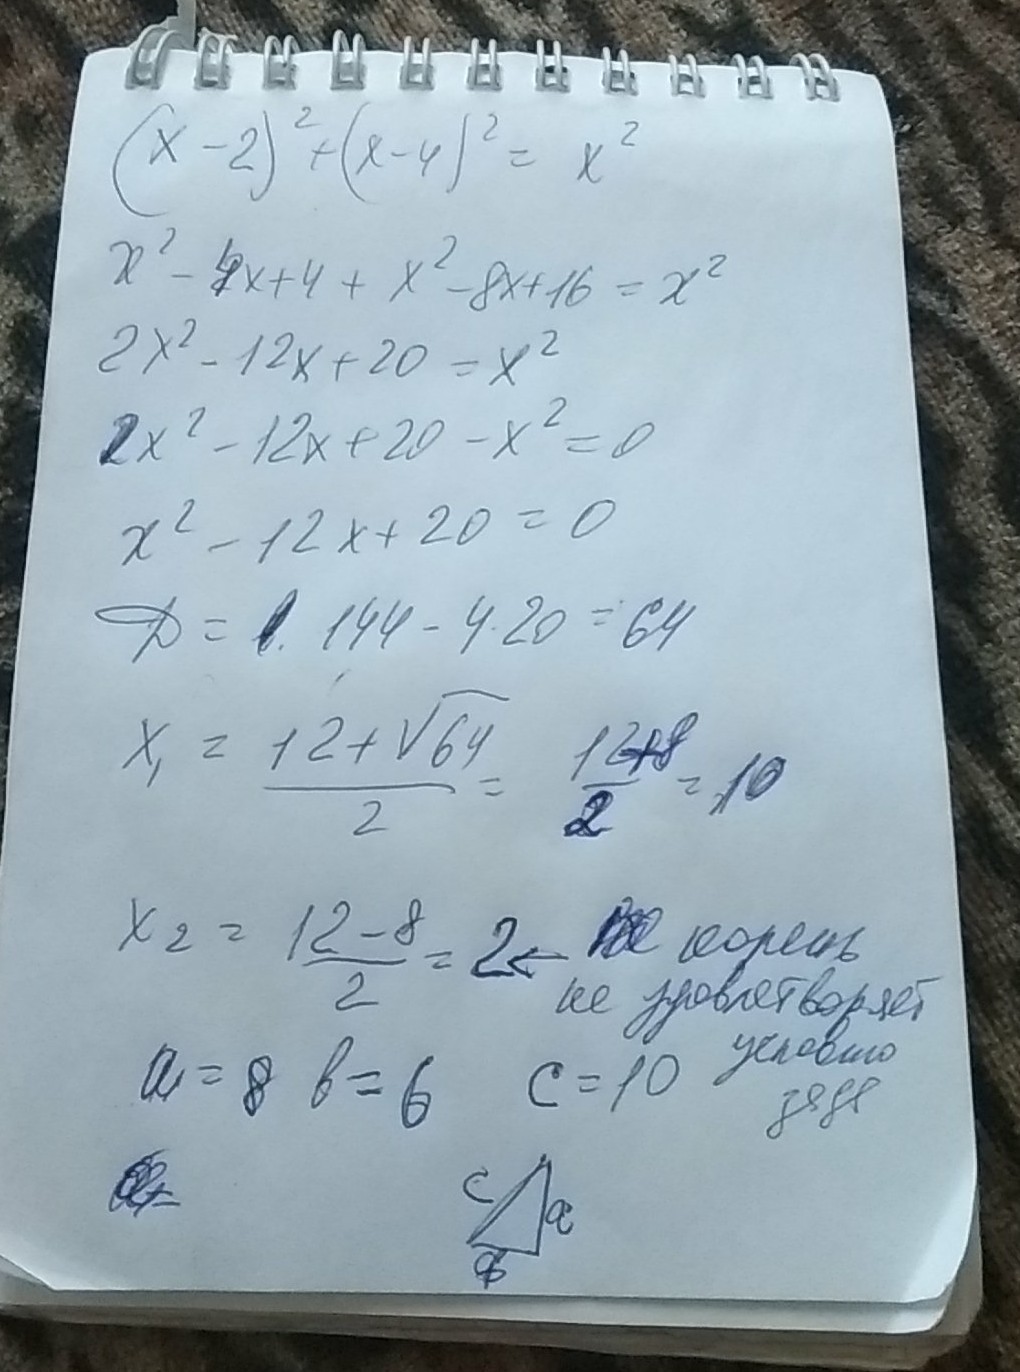 (x-2)² + (x-4)² = x²
x² - 4x+4 + x² - 8x+16 = x²
2x² - 12x+20 = x²
2x² - 12x+20 - x² = 0
x² - 12x+20 = 0
D = 1. 144 - 4·20 = 64
x₁ = (12+√64)/2 = (12+8)/2 = 10
x₂ = (12-8)/2 = 2 ← корень
не удовлетворяет
условию
a = 8 b = 6 c = 10
c a
b